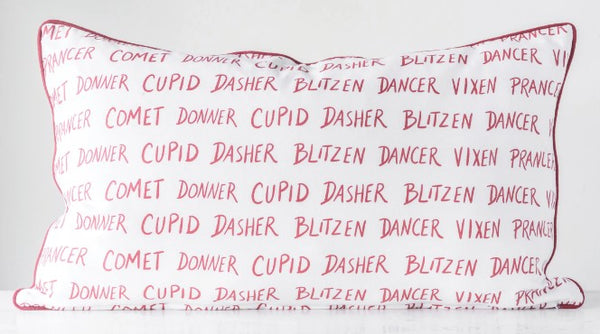 COMET DONNER CUPID DASHER BLITZEN DANCER
PRANCER COMET DONNER CUPID DASHER BLITZEN DANCER VI
MET DONNER CUPID DASHER BLITZEN DANCER VIXEN PRANCER
RANCER COMET DONNER CUPID DASHER BLITZEN DANCER
MET DONNER CUPID DASHER BLITZEN DANCER VIXEN PRANCER
RANCER COMET DONNER CUPID DASHER BLITZEN DANCER VIX
MET DONNER CUPID DASHER BLITZEN DANCER VIXEN PRANCER
RANCER COMET DONNER CUPID DASHER BLITZEN DANCER VI
DONNER CUPID DASHER BLITZEN DANCER VIXEN PRANCER